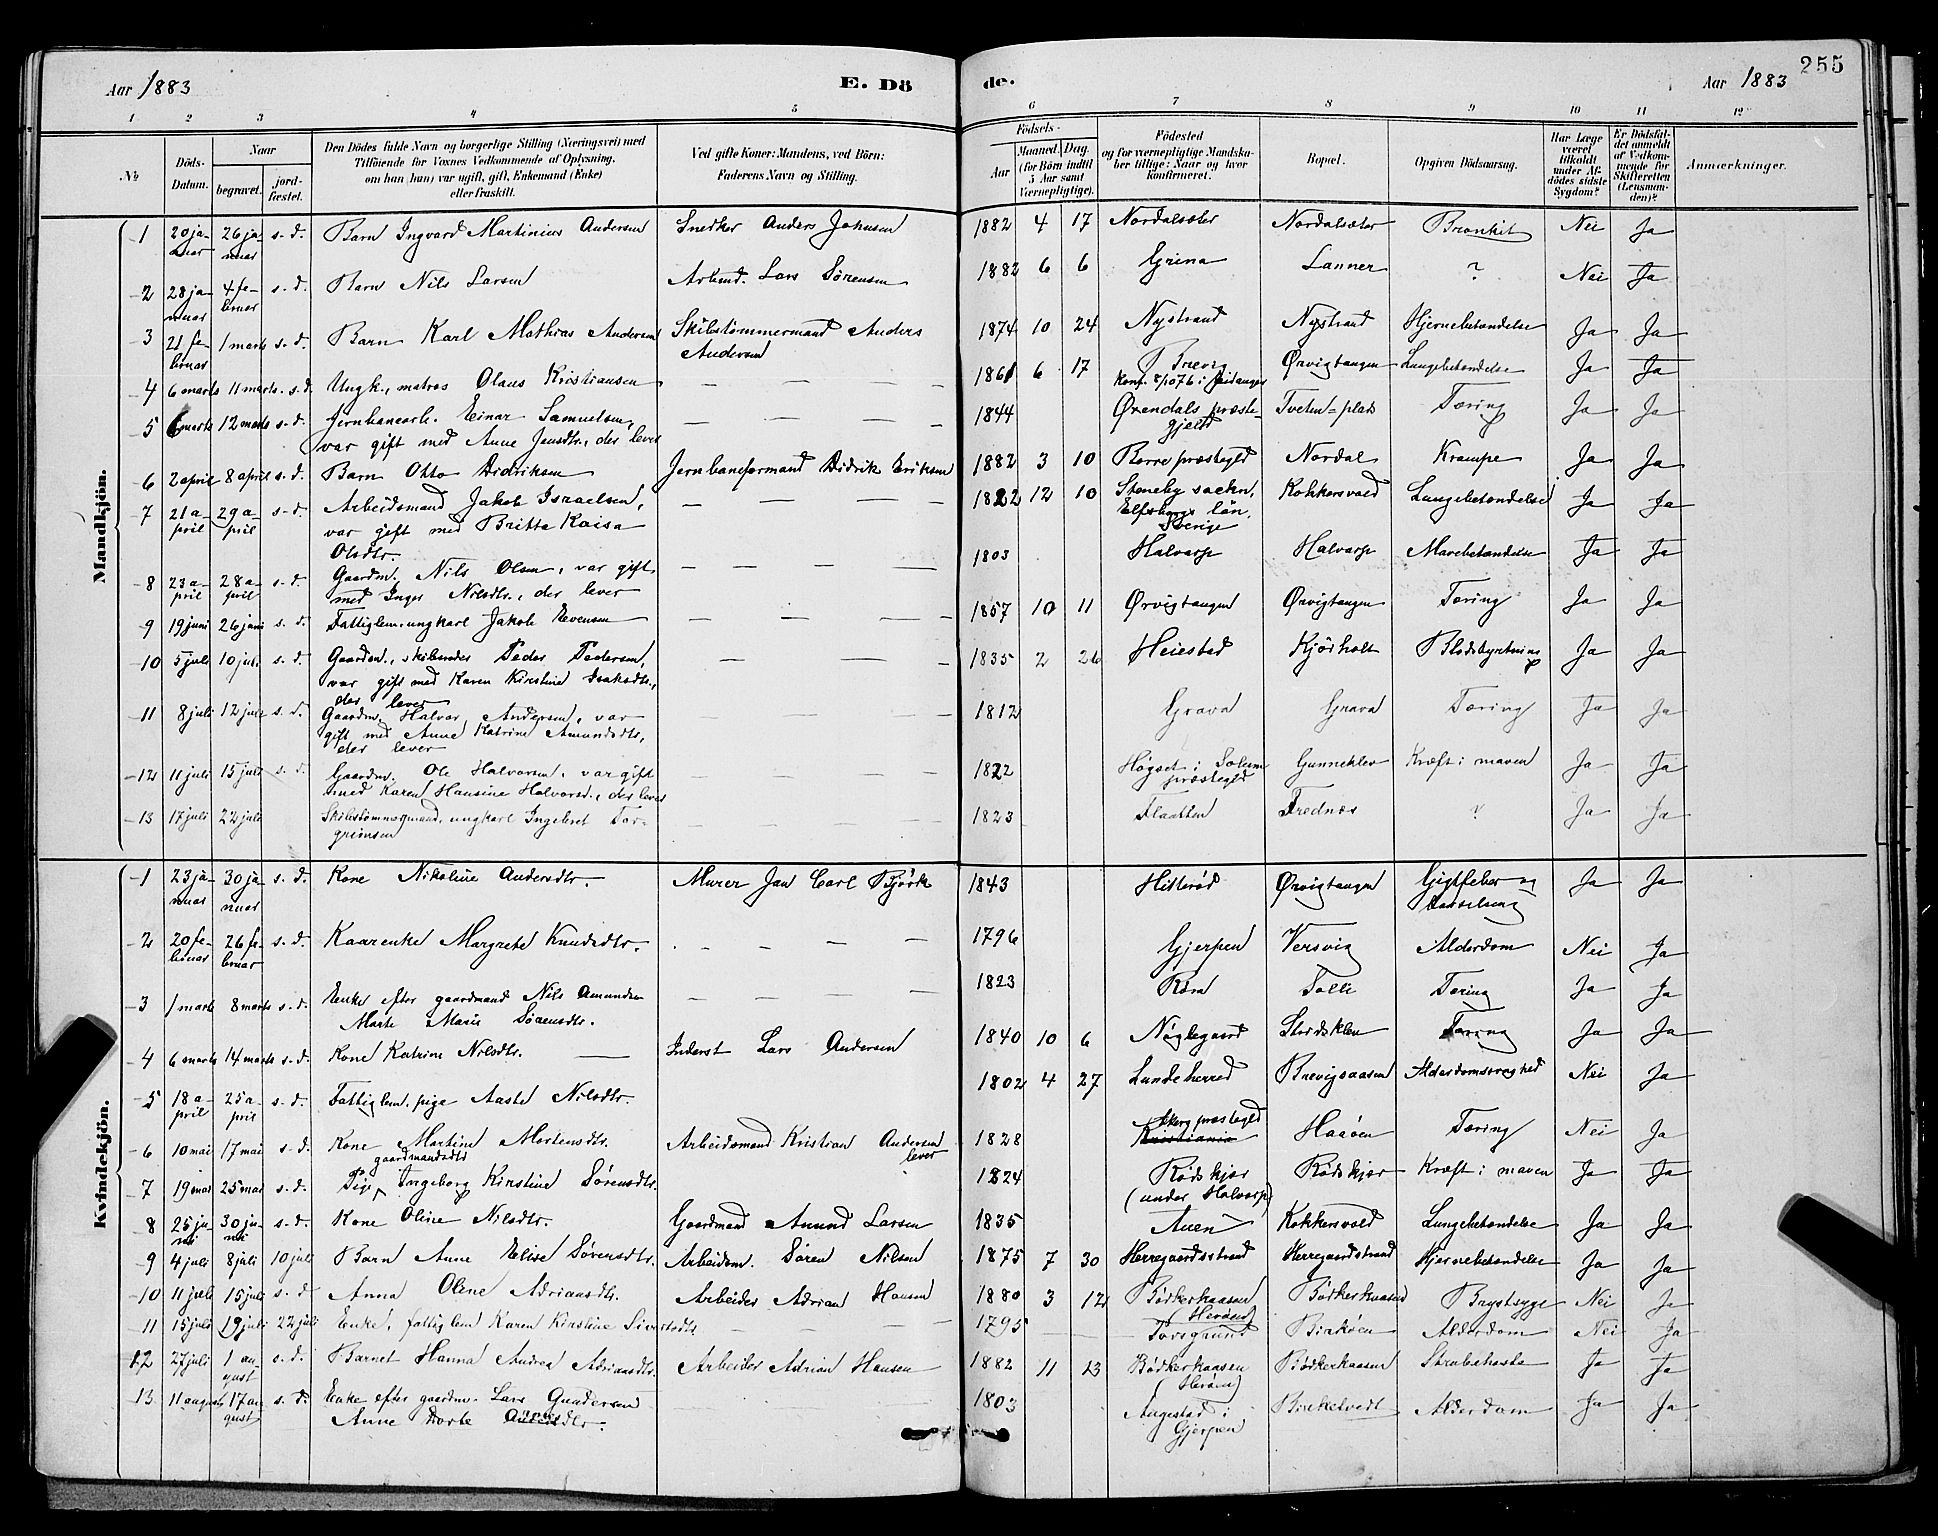 Aar 1883 E. Dö
de. Aar 1883 255
1 2 3 4 5
6 7 8 9 10 11 12
No Döds-Datum. Naar begravet. jordfæstet. Den Dödes fulde Navn og borgerlige Stilling (Næringsvei) med Tilföiende for Voxnes Vedkommende af Oplysning, om han (hun) var ugift, gift, Enkemand (Enke) eller fraskilt. Ved gifte Koner: Mandens, ved Börn: Faderens Navn og Stilling.
Födsels- Aar Maaned. Dag. (for Börn indtil 5 Aar samt Værnepligtige). Födested og for værnepligtige Mandskaber tillige: Naar og hvor konfirmeret. Bopæl. Opgiven Dödsaarsag. Har Læge været tilkaldt under Afdödes sidste Sygdom? Er Dödsfaldet anmeldt af Vedkommende for Skifteretten (Lensmanden)? Anmerkninger.
Mandkjön.
1 20 januar 26 januar s. d. Barn Ingvard Martinius Andersen Snedker Anders Johnsen 1882 4 17 Nordalsæter Nordalsæter Bronkit Nei Ja
2 28 januar 4 februar s. d. Barn Nils Larsen Arbmd. Lars Sørensen 1882 6 6 Grina Lanner ? Nei Ja
3 21 februar 1 marts s. d. Barn Karl Mathias Andersen Skibstømmermand Anders
Andersen 1874 10 24 Nystrand Nystrand Hjernebetændelse Ja Ja
4 6 marts 11 marts s. d. Ungk., matros Olaus Kristiansen — — — 1861 6 17 Brevig Ørvigtangen Lungebetændelse Ja Ja
Konf. 8/10 76 i Eidanger
5 6 marts 12 marts s. d. Jernbanearb. Einar Samuelsen, — — — 1844 præste- Tveten=plads Tæring Ja Ja
var gift med Anne Jensdtr., der lever gjeld
6 2 april 8 april s. d. Barn Otto Didriksen Jernbaneformand Didrik Eriksen 1882 3 10 Borre præstegjld Nordal Krampe Ja Ja
7 21 april 29 april s. d. Arbeidsmand Jakob Israelsen, — — — 1822 12 10 Steneby sockn, Kokkersvold Lungebetændelse Ja Ja
var gift med Britta Kaisa Elfsborgs län,
Olsdtr. Sverige
8 23 april 28 april s. d. Gaardm. Nils Olsen, var gift — — — 1803 Halvarp Halvarp Mavebetændelse Ja Ja
med Inger Nilsdtr., der lever
9 19 juni 26 juni s. d. Fattiglem, ungkarl Jakob Evensen — — — 1857 10 11 Ørvigtangen Ørvigtangen Tæring Ja Ja
10 5 juli 10 juli s. d. Gaardm., skibsreder Peder Pedersen, — — — 1835 2 26 Heiestad Kjørholt Blodstyrtning Ja Ja
var gift med Karen Kirstine Isaksdtr.,
der lever
11 8 juli 12 juli s. d. Gaardm. Halvor Andersen, var — — — 1812 Grava Grava Tæring Ja Ja
gift med Anne Katrine Amundsdtr,
der lever
12 11 juli 15 juli s. d. Gaardm. Ole Halvorsen, var gift — — — 1822 Høgset i Solum Gunneklev Kræft i maven Ja Ja
med Karen Hansine Halvorsd., der lever præstegjld
13 17 juli 22 juli Skibstømmermand, ungkarl Ingebret Tor- — — — 1823 Flaatten Frednæs ? Ja Ja
grimsen
Kvindekjön.
1 23 januar 30 januar s. d. Kone Nikoline Andersdtr. Murer Jan Carl Bjørk 1843 Hitterød Ørvigtangen Gigtfeber og Ja Ja
barselseng
2 20 februar 26 februar s. d. Kaarenke Margrete Knudsdtr. — — — 1796 Gjerpen Versvig Alderdom Nei Ja
3 1 marts 8 marts s. d. Enke efter gaardmand Nils Amundsen — — — 1823 Røra Tæring Ja Ja
Marte Marie Sørensdtr.
4 6 marts 14 marts s. d. Kone Katrine Nilsdtr. — Inderst Lars Andersen 1840 10 6 Nøglegaard Stridsklev Tæring Ja Ja
5 18 april 25 april s. d. Fattiglem, pige Aaste Nilsdtr. 1802 4 27 Lundeherred Brevigsaasen Alderdomssvaghed Nei Ja
6 10 mai 17 mai s. d. Kone Martine Mortensdtr. Arbeidsmand Kristian Andersen 1828 Aker præstegjld Haaøen Tæring Nei Ja
lever Kristiania
gaardmandsdtr
7 19 mai 25 mai s. d. Pige Ingeborg Kirstine Sørensdtr. 1824 Rødskjær Rødskjær Kræft i maven Ja Ja
(under Halvarp)
8 25 juni 30 juni s. d. Kone Oline Nilsdtr. Gaardmand Amund Larsen 1835 Auen Kokkersvold Lungebetændelse Ja Ja
9 4 juli 8 juli 10 juli Barn Anne Elise Sørensdtr. Arbeidsm. Søren Nilsen 1875 7 30 Herregaardsstrand Herregaardstrand Hjernebetændelse Ja Ja
10 11 juli 15 juli s. d. Anna Oline Adriansdtr. Arbeider Adrian Hansen 1880 3 12 Bødkerkaasen Bødkerkaasen Brystsyge Nei Ja
(Herøen)
11 15 juli 19 juli 22 juli Enke, fattiglem Karen Kirstine Siversdtr. — — 1795 — — Porsgrund Birkøen Alderdom Nei Ja
12 27 juli 1 august s. d. Barnet Hanna Andrea Adriansdtr. Arbeider Adrian Hansen 1882 11 23 Bødkerkaasen Bødkerkaasen Strubehoste Ja Ja
(Herøen)
13. 11 august 17 august s. d. Enke efter gaardm. Lars Gundersen 1803 Augestad i Birkelvedt Alderdom Ja Ja
Anne Dorte Gjerpen